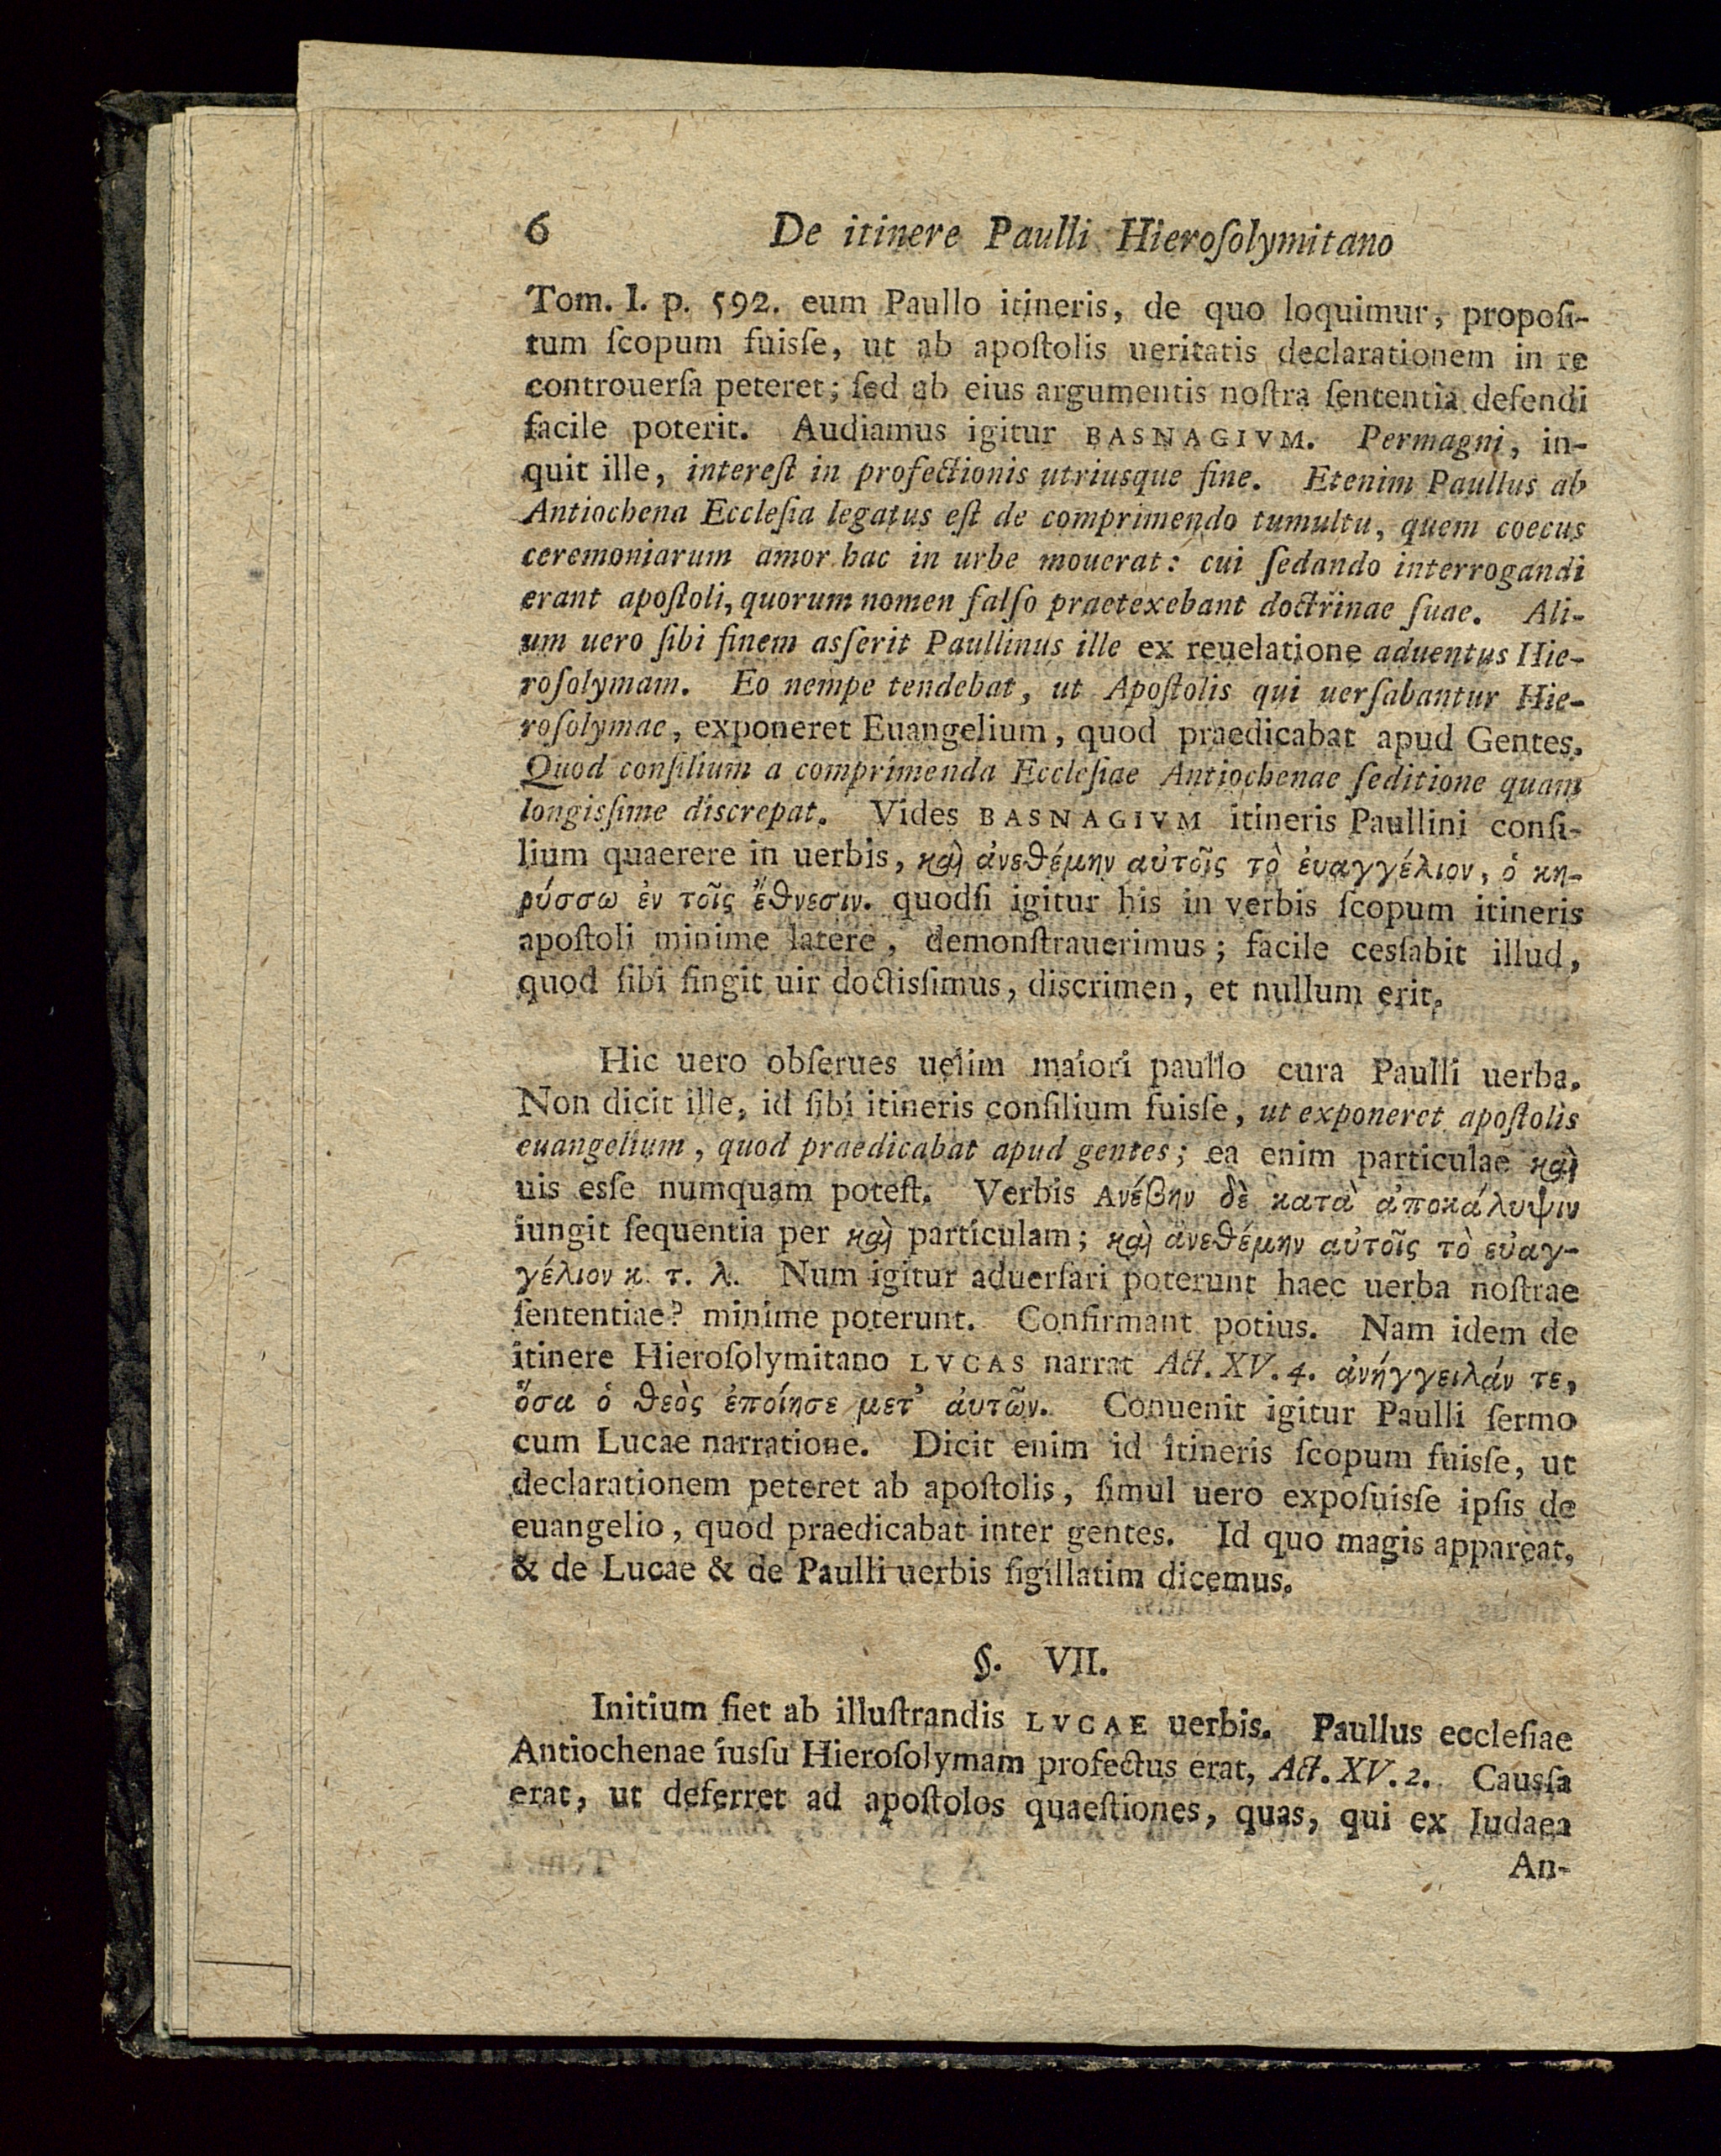 6 De itinere Paulli Hieroſolymitano
Tom. I. p. 592. eum Paullo itineris, de quo loquimur, propoſi-
tum ſcopum fuisſe, ut ab apoſtolis ueritatis declarationem in re
controuerſa peteret; ſed ab eius argumentis noſtra ſententia defendi
facile poterit. Audiamus igitur BASNAGIVM. Permagni, in-
quit ille, intereſt in profectionis utriusque fine. Etenim Paullus ab
Antiochena Eccleſia legatus eſt de comprimendo tumultu, quem coecus
ceremoniarum amor hac in urbe mouerat: cui ſedando interrogandi
erant apoſtoli, quorum nomen falſo praetexebant doctrinae ſuae. Ali-
um uero ſibi finem asſerit Paullinus ille ex reuelatione aduentus Hie-
roſolymam. Eo nempe tendebat, ut Apoſtolis qui uerſabantur Hie-
roſolymae, exponeret Euangelium, quod praedicabat apud Gentes.
Quod conſilium a comprimenda Eccleſiae Antiochenae ſeditione quam
longisſime discrepat. Vides BASNAGIVM itineris Paullini conſi-
lium quaerere in uerbis, καὶ ἀνεθέμην αὐτοῖς τὸ ἐυαγγέλιον, ὁ κη-
ρύσσω ἐν τοῖς ἔθνεσιν. quodſi igitur his in verbis ſcopum itineris
apoſtoli minime latere, demonſtrauerimus; facile cesſabit illud,
quod ſibi fingit uir doctisſimus, discrimen, et nullum erit.
Hic uero obſerues uelim maiori paullo cura Paulli uerba.
Non dicit ille, id ſibi itineris conſilium fuisſe, ut exponeret apoſtolis
euangelium, quod praedicabat apud gentes; ea enim particulae καὶ
uis esſe numquam poteſt. Verbis Ανέβην δὲ κατὰ ἀποκάλυψιν
iungit ſequentia per καὶ particulam; καὶ ἀνεθέμην αὐτοῖς τὸ εὐαγ-
γέλιον κ. τ. λ. Num igitur aduerſari poterunt haec uerba noſtrae
ſententiae? minime poterunt. Confirmant potius. Nam idem de
itinere Hieroſolymitano LVCAS narrat Act. XV. 4. ἀνήγγειλάν τε,
ὅσα ὁ θεὸς ἐποίησε μετ' ἀυτῶν. Conuenit igitur Paulli ſermo
cum Lucae narratione. Dicit enim id itineris ſcopum fuisſe, ut
declarationem peteret ab apoſtolis, ſimul uero expoſuisſe ipſis de
euangelio, quod praedicabat inter gentes. Id quo magis appareat,
& de Lucae & de Paulli uerbis ſigillatim dicemus.
§. VII.
Initium fiet ab illuſtrandis LVCAE uerbis. Paullus eccleſiae
Antiochenae iusſu Hieroſolymam profectus erat, Act. XV. 2. Causſa
erat, ut deferret ad apoſtolos quaeſtiones, quas, qui ex Iudaea
An-